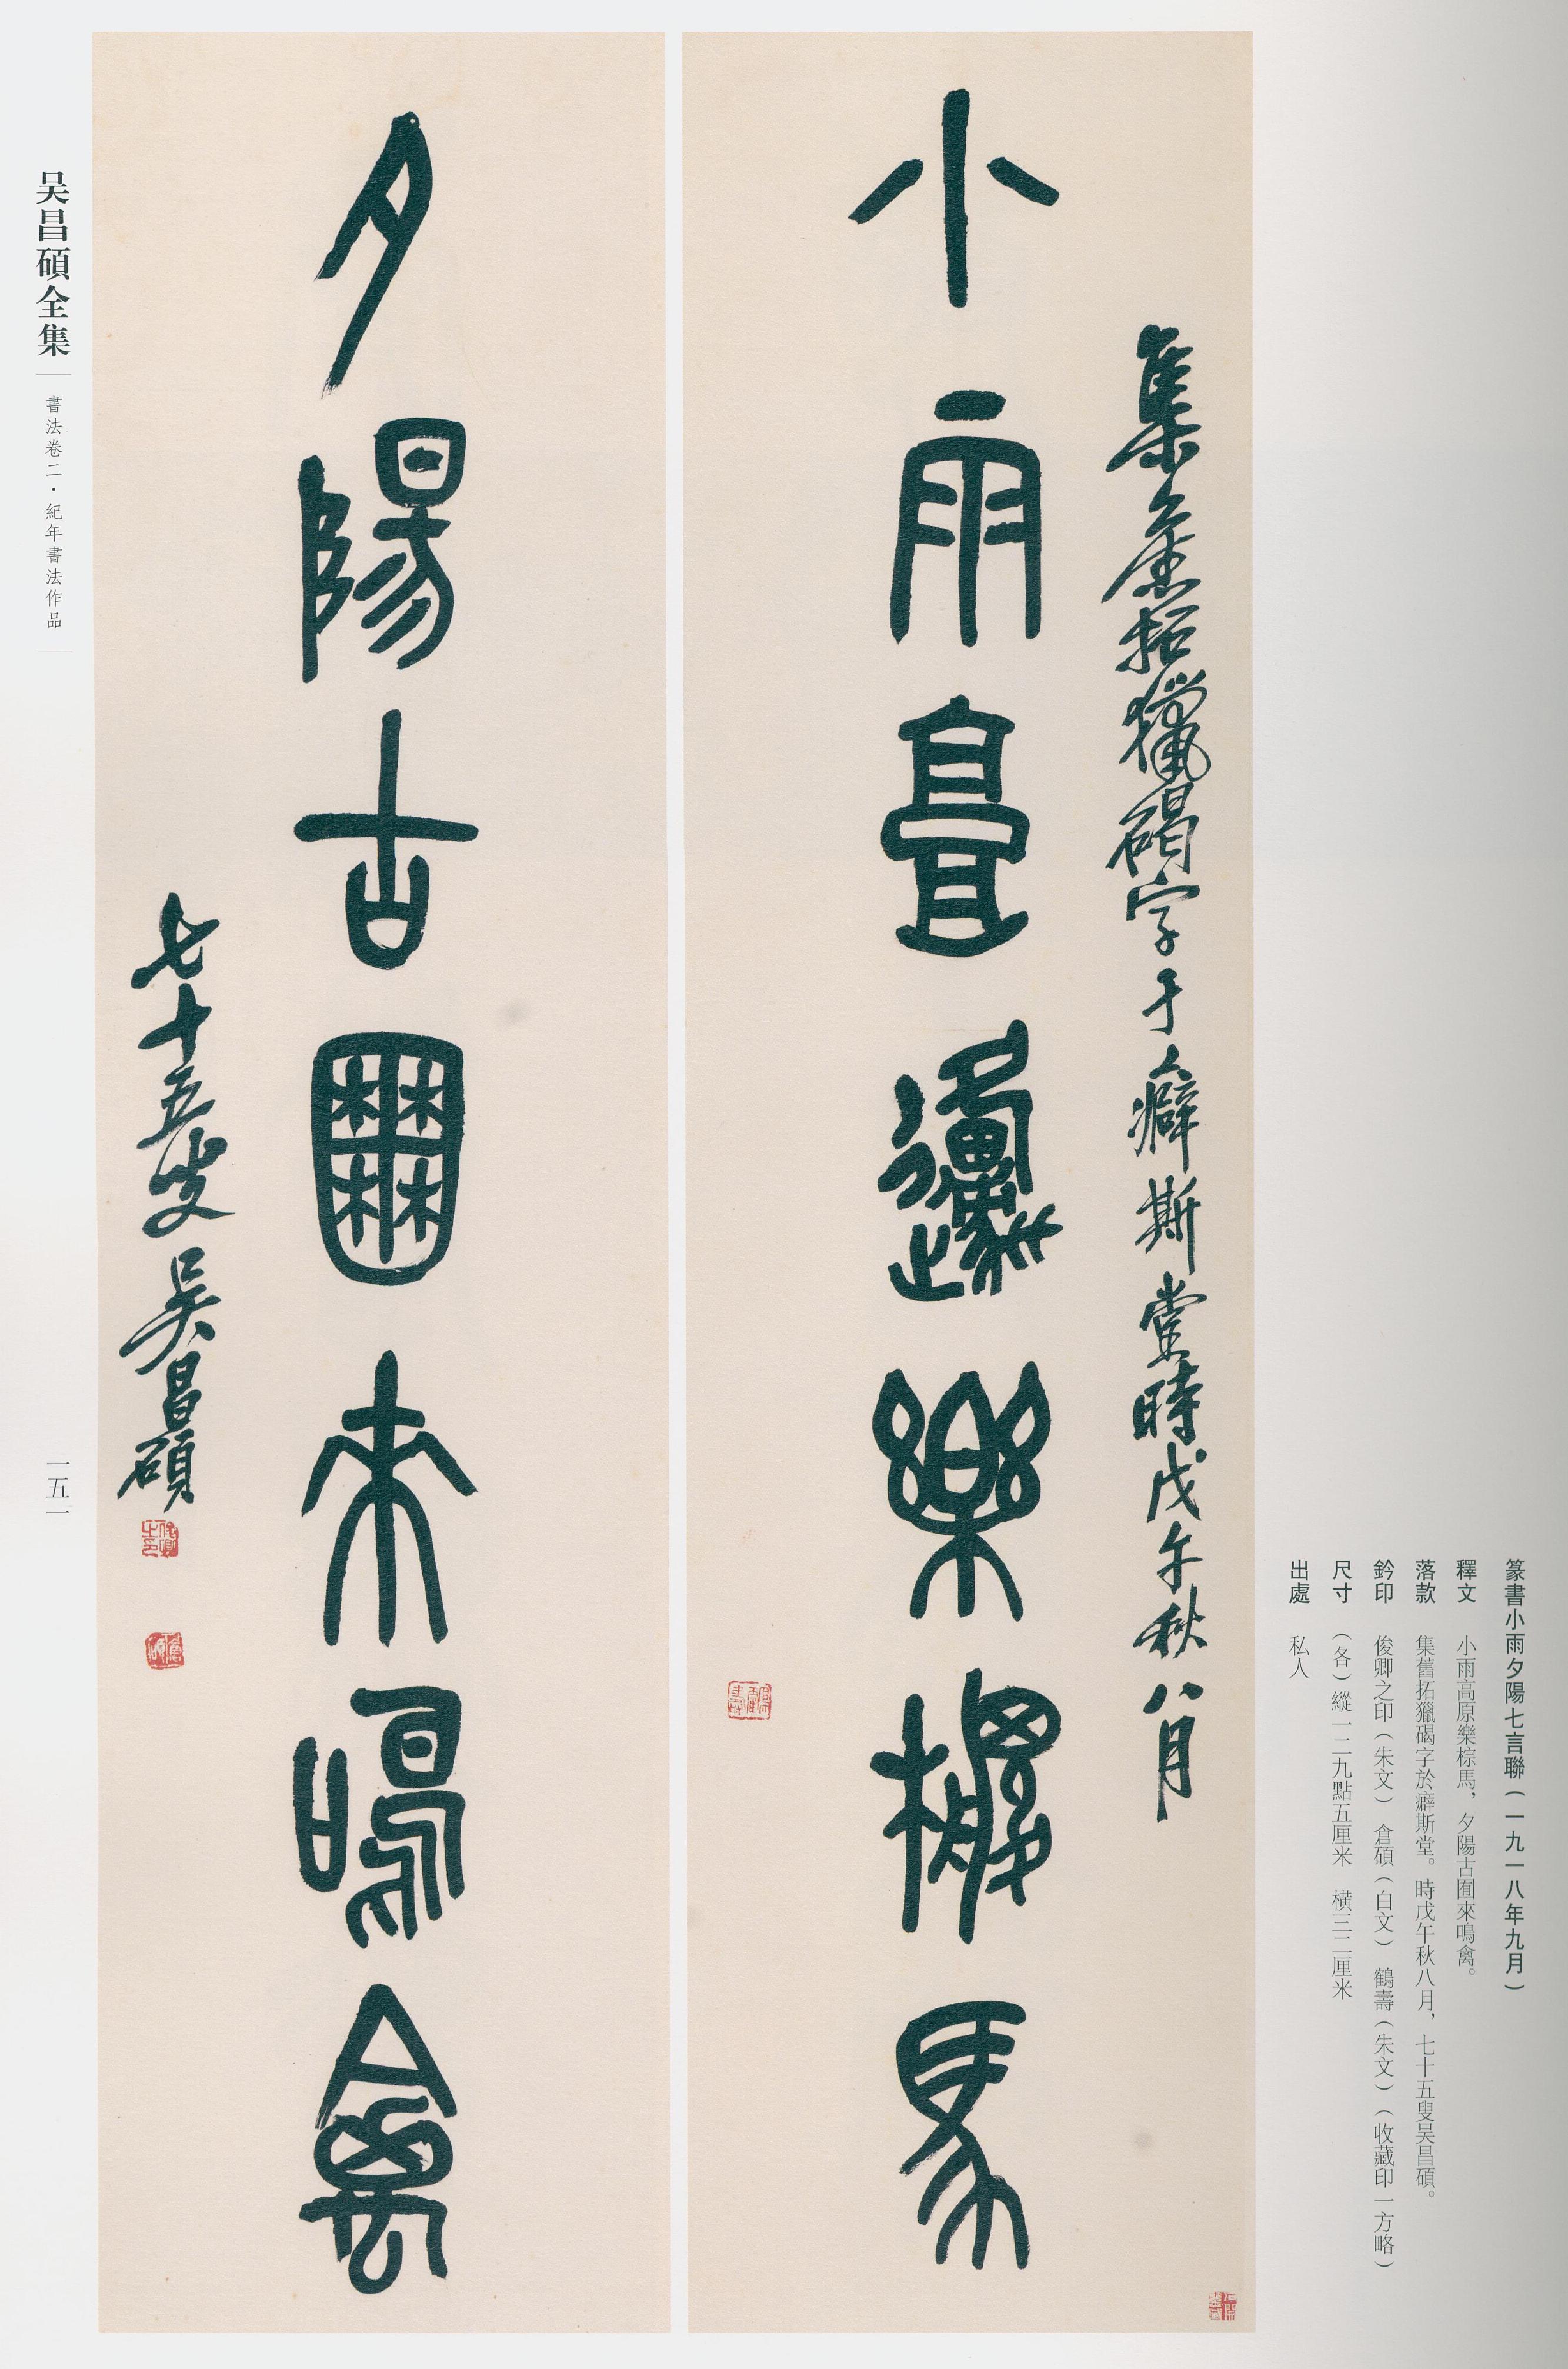 篆書小雨夕陽七言聯（一九一八年九月）
釋文　小雨高原樂棕馬，夕陽古囿來鳴禽。
落款　集舊拓獵碣字於癖斯堂。時戊午秋八月，七十五叟吴昌碩。
鈐印　俊卿之印（朱文）　倉碩（白文）　鶴壽（朱文）（收藏印一方略）
尺寸　（各）縱一二九點五厘米　橫三二厘米
出處　私人
集舊拓獵碣字于癖斯堂時戊午秋八月
小雨高原樂棕馬
夕陽古囿來鳴禽
七十五叟吳昌碩
俊卿之印
倉碩
吴昌碩全集
書法卷二·紀年書法作品
一五一